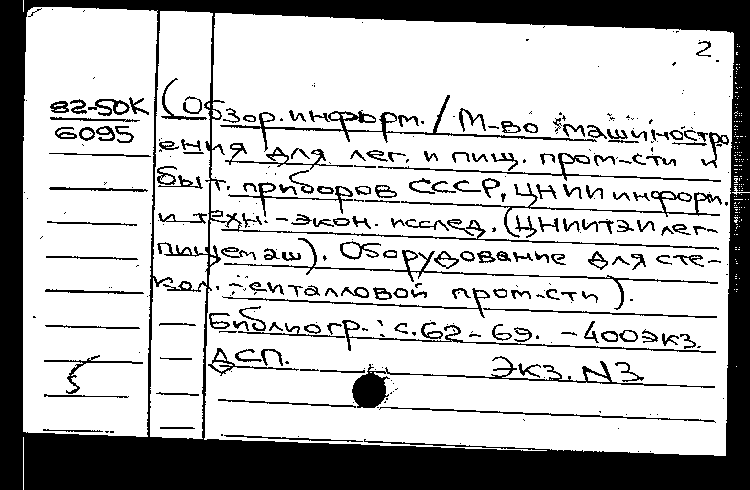 2.
82-50К
6095
(Обзор. информ. / М-во машиностро
ения для лег. и пищ. пром-сти и
быт. приборов СССР, ЦНИИ информ.
и техн.-экон. исслед. (ЦНИИТЭИлег-
пищемаш). Оборудование для сте-
кол.- пром-сти).
Библиогр.: с. 62-69. - 400 экз.
ДСП. Экз. N3